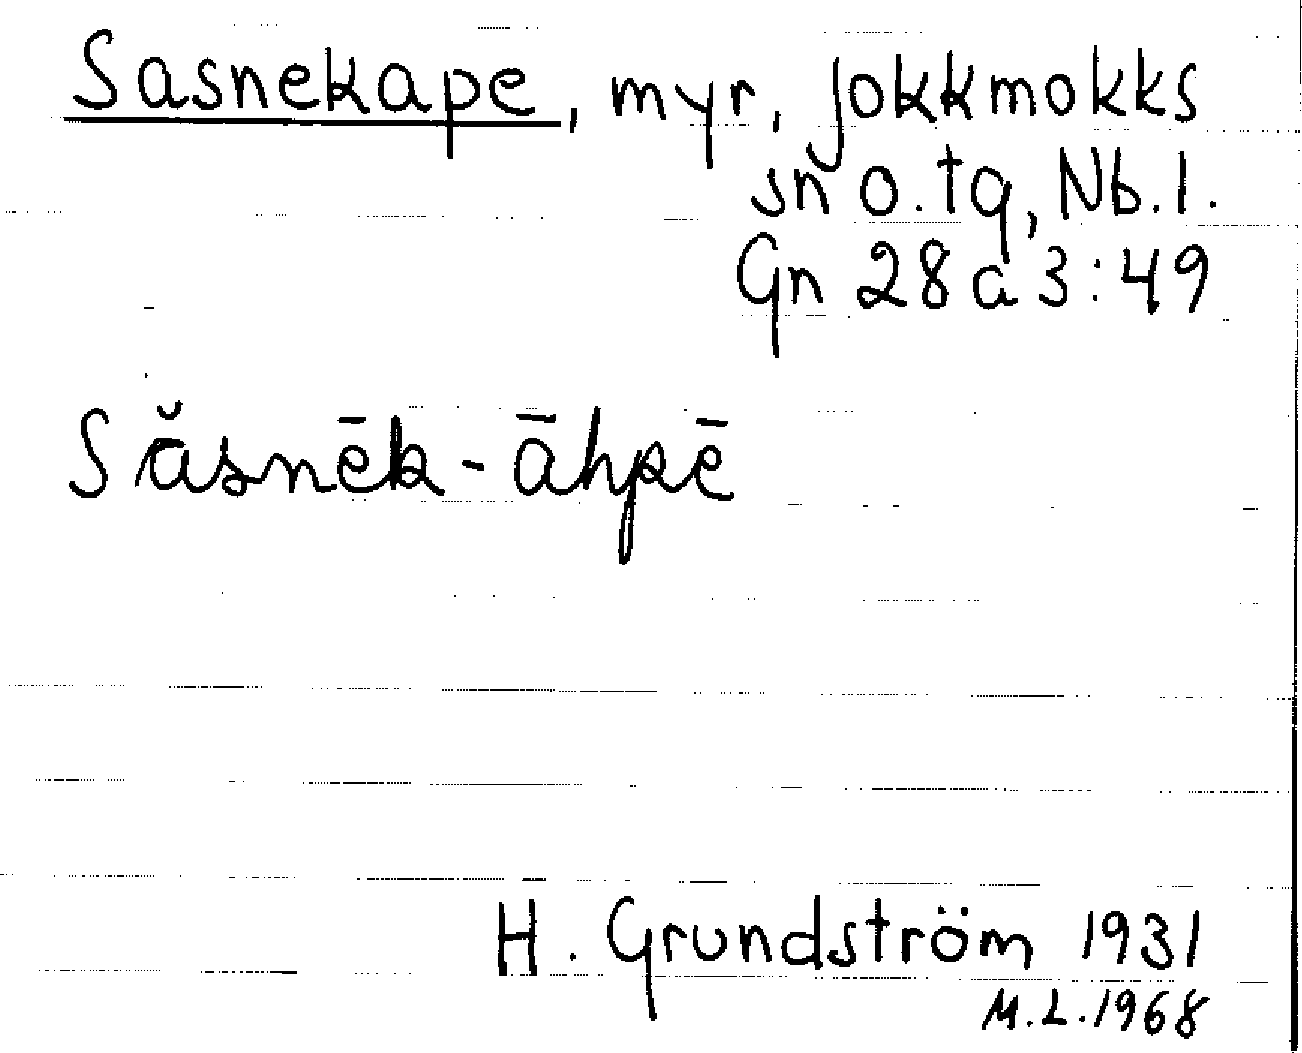 Sasnekape, myr, Jokkmokks
sn o. tg, Nb. l.
Gn 28 a 3:49
Săsnēk-āhpē
H. Grundström 1931
M.L. 1968